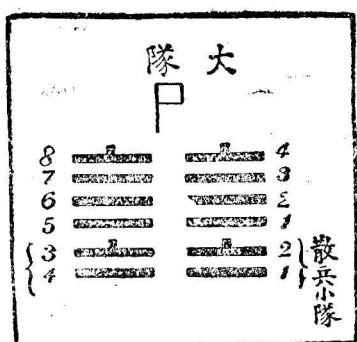 大隊
8 4
7 3
6 2
5 1
3 2
4 1
散兵小隊